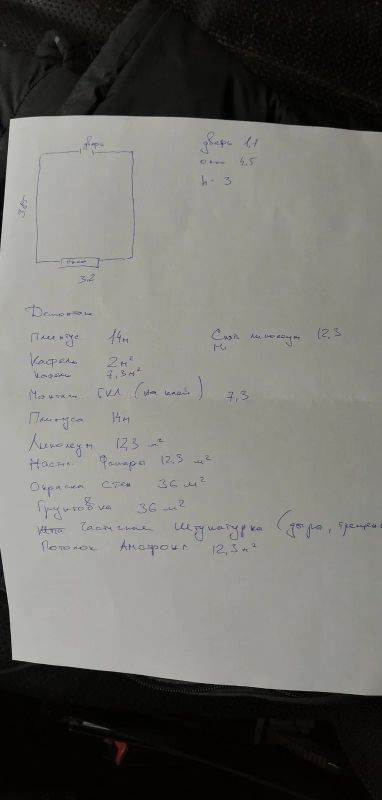 дверь
дверь 1,7
окно 4,5
h - 3
3,85
окно
3,2
Демонтаж
Плинтус 14м
Снят линолеум 12,3
м²
Кафель 2м²
кафель 7,3м²
Монтаж ГКЛ (на клей) 7,3
Плинуса 14м
Линолеум 12,3 м²
Настил Фанеры 12,3 м²
Окраска стен 36 м²
Грунтовка 36 м²
Частичная Штукатурка (дыра, трещены
Потолок Амстронг 12,3м²